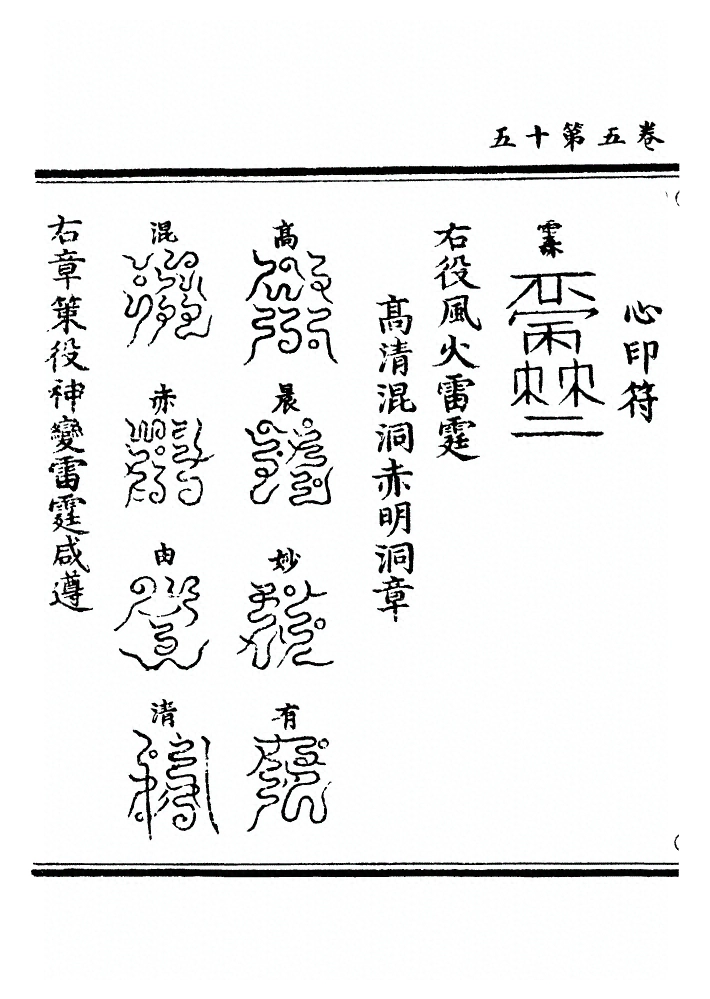 卷五第十五
心印符
右役風火雷霆
高清混洞赤明洞章
高
晨
妙
有
混
赤
由
清
右章策役神變雷霆咸遵